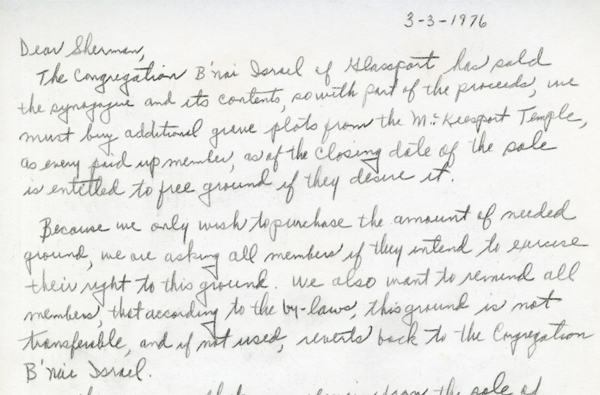 3-3-1976
Dear Sherman,
The Congregation B'nai Israel of Glassport has sold
the synagogue and its contents, so with part of the proceeds, we
must buy additional grave plots from the Mc Keesport Temple,
as every paid up member, as of the closing date of the sale
is entitled to free ground if they desire it.
Because we only wish to purchase the amount of needed
ground, we are asking all members if they intend to exercise
their right to this ground. We also want to remind all
members, that according to the by-laws, this ground is not
transferable, and if not used, reverts back to the Congregation
B'nai Israel.
from the sale of